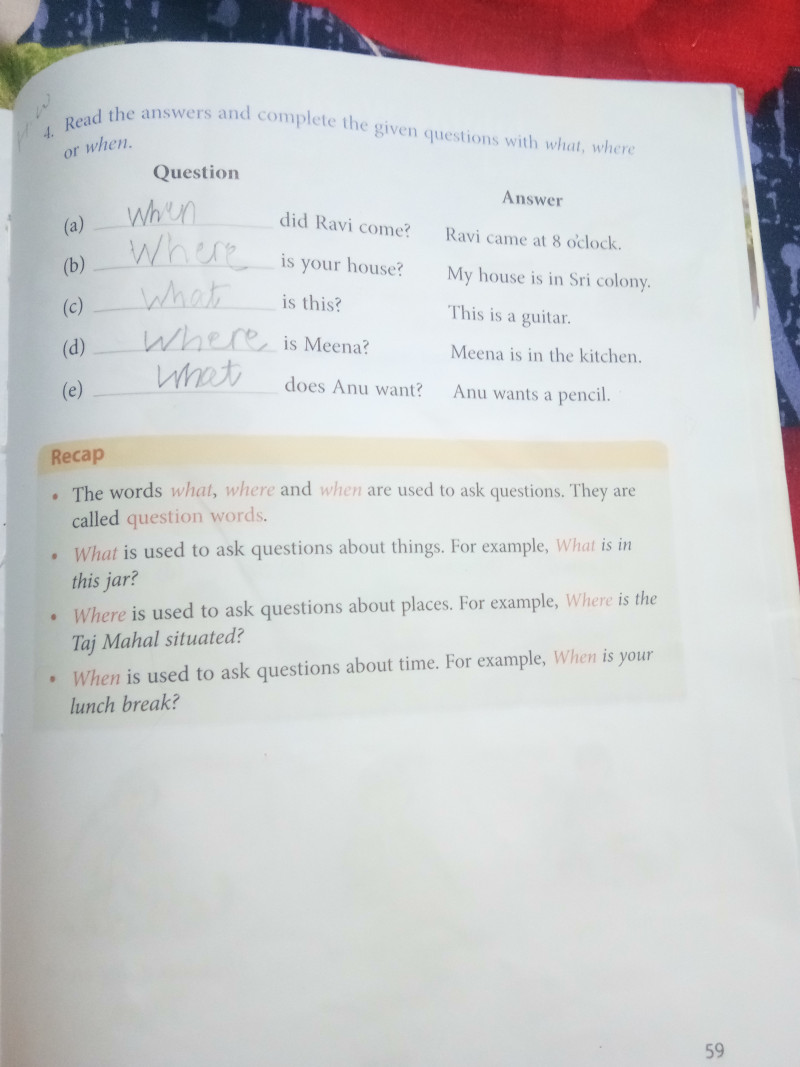 H.W
4. Read the answers and complete the given questions with what, where
or when.
Question Answer
(a) When did Ravi come? Ravi came at 8 o'clock.
(b) Where is your house? My house is in Sri colony.
(c) What is this? This is a guitar.
(d) Where is Meena? Meena is in the kitchen.
(e) What does Anu want? Anu wants a pencil.
Recap
• The words what, where and when are used to ask questions. They are
called question words.
• What is used to ask questions about things. For example, What is in
this jar?
• Where is used to ask questions about places. For example, Where is the
Taj Mahal situated?
• When is used to ask questions about time. For example, When is your
lunch break?
59